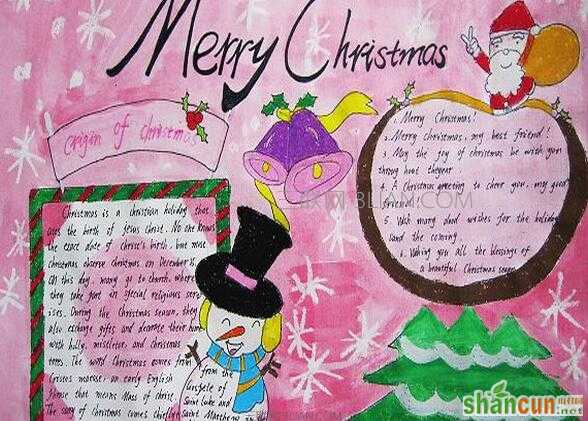 Merry Christmas
Origin of Christmas
Christmas is a christian holiday that
the birth of Jesus Christ. No one knows
the exact date of christ's birth, but most
Christmas observe Christmas on December 25.
On this day, many go to church, where
they take part in special religious serv
ices. During the Christmas season, they
also exchange gifts and decorate their homes
with holly, mistletoe, and Christmas
trees. The word Christmas comes from
Cristes maesse, an early English
Phrase that means Mass of christ.
The story of Christmas comes chiefly
from the
Gospels of
Saint Luke and
Saint Matthew in the
1. Merry Christmas!
2. Merry christmas, my best friend!
3. May the joy of christmas be with you
throug hout the year.
4. A Christmas greeting to cheer you, my good
friend.
5. Wish many good wishes for the holiday
and the coming.
6. Wishing you all the blessings of
a beautiful Christmas season
.COM
shancun
.net